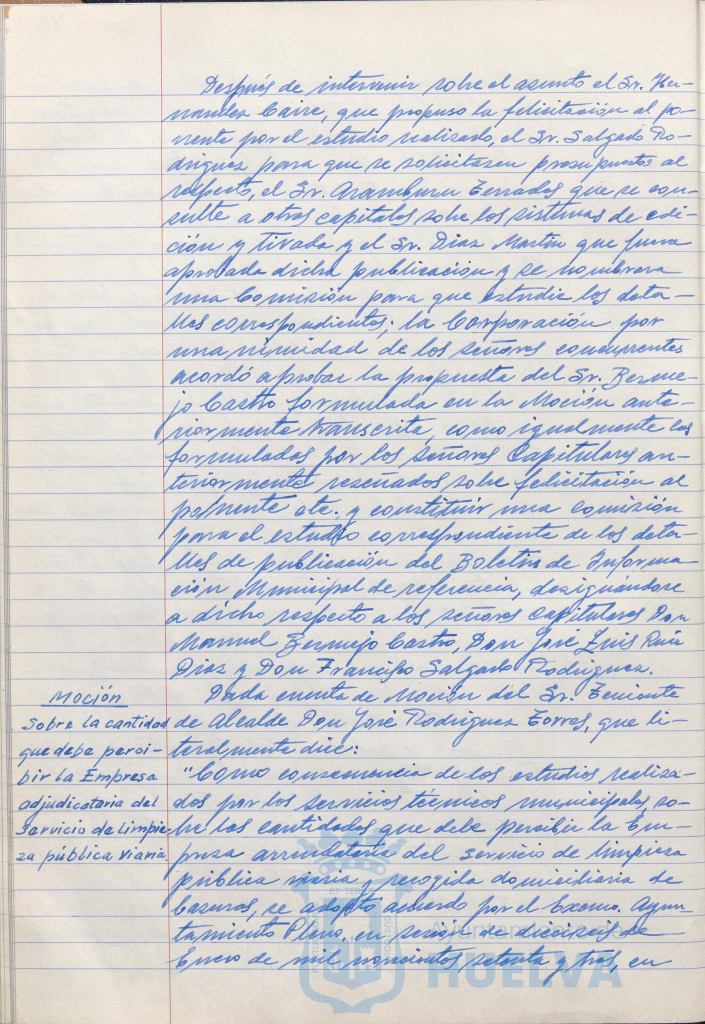 Después de intervenir sobre el asunto el Sr. Her-
nandez Caire, que propuso la felicitación al po-
nente por el estudio realizado, el Sr. Salgado Ro-
driguez para que se solicitasen presupuestos al
respecto, el Sr. Aramburu Terrades que se con-
sulte a otras capitales sobre los sistemas de edi-
ción y tirada y el Sr. Diaz Martin que fuera
aprobada dicha publicación y se nombrara
una Comisión para que estudie los deta-
lles correspondientes; la Corporación por
unanimidad de los señores concurrentes
acordó aprobar la propuesta del Sr. Berme-
jo Castro formulada en la Moción ante-
riormente transcrita, como igualmente las
formuladas por los señores Capitulares an-
teriormente reseñados sobre felicitación al
ponente etc. y constituir una comisión
para el estudio correspondiente de los deta-
lles de publicación del Boletin de Informa-
ción Municipal de referencia, designándose
a dicho respecto a los señores Capitulares Don
Manuel Bermejo Castro, Don José Luis Ruiz
Diaz y Don Francisco Salgado Rodriguez.
Moción
Sobre la cantidad
que debe perci-
bir la Empresa
adjudicataria del
Servicio de limpie-
za pública viaria
Dada cuenta de Moción del Sr. Teniente
de Alcalde Don José Rodriguez Torres, que li-
teralmente dice:
"Como consecuencia de los estudios realiza-
dos por los servicios tecnicos municipales, so-
bre las cantidades que debe percibir la Em-
presa arrendataria del servicio de limpieza
pública viaria y recogida domiciliaria de
basuras, se adoptó acuerdo por el Excmo. Ayun-
tamiento Pleno, en sesión de dieciseis de
Enero de mil novecientos setenta y tres, en
Ayuntamiento de
HUELVA